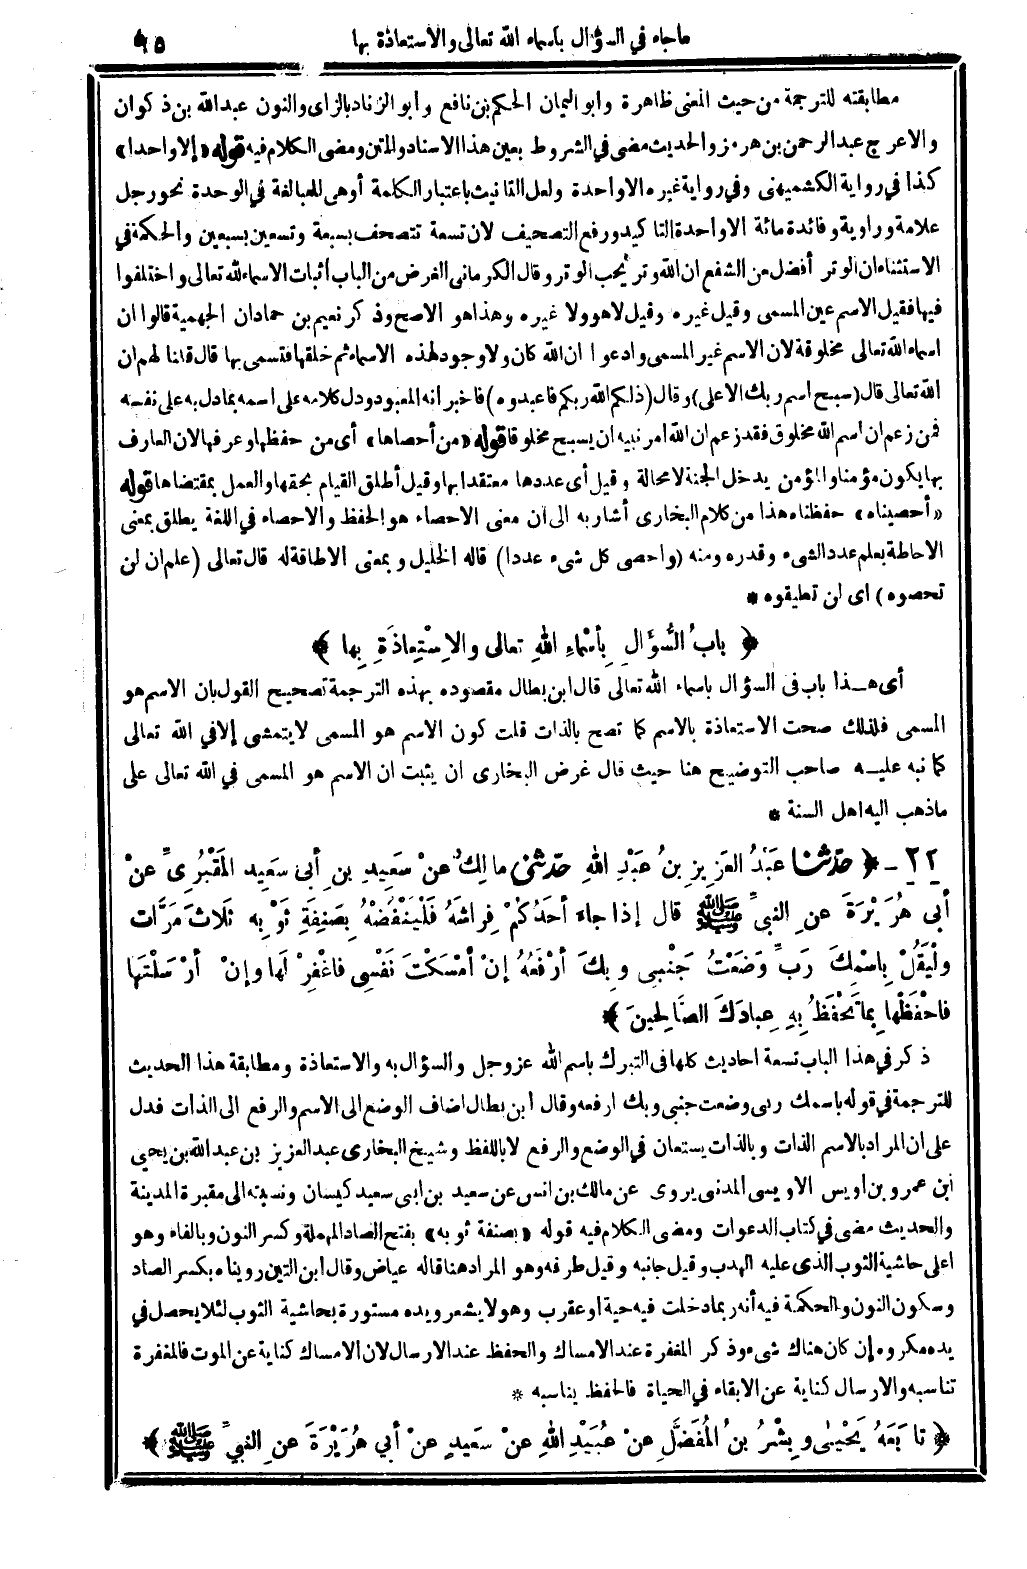 ماجاء في السؤال بأسماء الله تعالى والاستعاذة بها ٩٥
مطابقته للترجمة من حيث المعنى ظاهرة وابو اليمان الحكم بن نافع وابو الزناد بالزاى والنون عبد الله بن ذكوان
والاعرج عبد الرحمن بن هرمز والحديث مضى في الشروط بعين هذا الاسناد والمتن ومضى الكلام فيه قوله «إلا واحدا»
كذا في رواية الكشميهنى وفي رواية غيره الا واحدة ولعل التانيث باعتبار الكلمة أو هى للمبالغة في الوحدة نحو رجل
علامة وراوية وفائدة مائة الا واحدة التاكيد ورفع التصحيف لان تسعة تتصحف بسبعة وتسعين بسبعين والحكمة في
الاستثناء ان الوتر أفضل من الشفع ان الله وتر يحب الوتر وقال الكرماني الغرض من الباب أثبات الاسماء لله تعالى واختلفوا
فيها فقيل الاسم عين المسمى وقيل غيره وقيل لا هو ولا غيره وهذا هو الاصح وذكر نعيم بن حماد ان الجهمية قالوا ان
اسماء الله تعالى مخلوقة لان الاسم غير المسمى وادعوا ان الله كان ولا وجود لهذه الاسماء ثم خلقها فتسمى بها قال قلنا لهم ان
الله تعالى قال (سبح اسم ربك الاعلى) وقال (ذلكم الله ربكم فاعبدوه) فاخبر انه المعبود ودل كلامه على اسمه بما دل به على نفسه
فمن زعم ان اسم الله مخلوق فقد زعم ان الله امر نبيه ان يسبح مخلوقا قوله «من أحصاها» أى من حفظها وعرفها لان العارف
بها يكون مؤمنا والمؤمن يدخل الجنة لا محالة وقيل أى عددها معتقدا بها وقيل أطلق القيام بحقها والعمل بمقتضاها قوله
«أحصيناه» حفظناه هذا من كلام البخارى أشار به الى ان معنى الاحصاء هو الحفظ والاحصاء في اللغة يطلق بمعنى
الاحاطة بعلم عدد الشىء وقدره ومنه (واحصى كل شىء عددا) قاله الخليل وبمعنى الاطاقة له قال تعالى (علم ان لن
تحصوه) اى لن تطيقوه *
﴿ بابُ السُّؤَالِ بِأسْماءِ اللهِ تعالى والاِسْتِعاذَةِ بِها ﴾
أى هـذا باب فى السؤال باسماء الله تعالى قال ابن بطال مقصوده بهذه الترجمة تصحيح القول بان الاسم هو
المسمى فلذلك صحت الاستعاذة بالاسم كما تصح بالذات قلت كون الاسم هو المسمى لا يتمشى إلا في الله تعالى
كما نبه عليـه صاحب التوضيح هنا حيث قال غرض البخارى ان يثبت ان الاسم هو المسمى في الله تعالى على
ماذهب اليه اهل السنة *
٢٢ - ﴿ حدّثنا عَبْدُ العَزِيزِ بنُ عَبْدِ اللهِ حدّثنى مالِكٌ عنْ سَعِيدِ بنِ أبى سَعِيدِ المَقْبُرِىِّ عنْ
أبى هُرَيْرَةَ عنِ النبيِّ ﷺ قال إذا جاءَ أحَدُكُمْ فِراشَهُ فَلْيَنْفُضْهُ بِصَنِفَةِ ثَوْبِهِ ثَلَاثَ مَرَّاتٍ
ولْيَقُلْ بِاسْمِكَ رَبِّ وَضَعْتُ جَنْبِى وبِكَ أرْفَعُهُ إنْ أمْسَكْتَ نَفْسِى فاغْفِرْ لَها وإنْ أرْسَلْتَها
فاحْفَظْها بِما تَحْفَظُ بِهِ عِبادَكَ الصَّالِحِينَ ﴾
ذكر في هذا الباب تسعة احاديث كلها فى التبرك باسم الله عز وجل والسؤال به والاستعاذة ومطابقة هذا الحديث
للترجمة في قوله باسمك ربى وضعت جنبى وبك ارفعه وقال ابن بطال اضاف الوضع الى الاسم والرفع الى الذات فدل
على ان المراد بالاسم الذات وبالذات يستعان في الوضع والرفع لا باللفظ وشيخ البخارى عبد العزيز بن عبد الله بن يحيى
ابن عمرو بن اويس الاويسى المدنى يروى عن مالك بن انس عن سعيد بن ابى سعيد كيسان ونسبته الى مقبرة المدينة
والحديث مضى في كتاب الدعوات ومضى الكلام فيه قوله «بصنفة ثوبه» بفتح الصاد المهملة وكسر النون وبالفاء وهو
اعلى حاشية الثوب الذى عليه الهدب وقيل جانبه وقيل طرفه وهو المراد هنا قاله عياض وقال ابن التين رويناه بكسر الصاد
وسكون النون والحكمة فيه أنه ربما دخلت فيه حية او عقرب وهو لا يشعر ويده مستورة بحاشية الثوب لئلا يحصل في
يده مكروه إن كان هناك شىء وذكر المغفرة عند الامساك والحفظ عند الارسال لان الامساك كناية عن الموت فالمغفرة
تناسبه والارسال كناية عن الابقاء في الحياة فالحفظ يناسبه *
﴿ تابَعَهُ يَحْيٰى وبِشْرُ بنُ المُفَضَّلِ عنْ عُبَيْدِ اللهِ عنْ سَعِيدٍ عنْ أبي هُرَيْرَةَ عنِ النبيِّ ﷺ ﴾